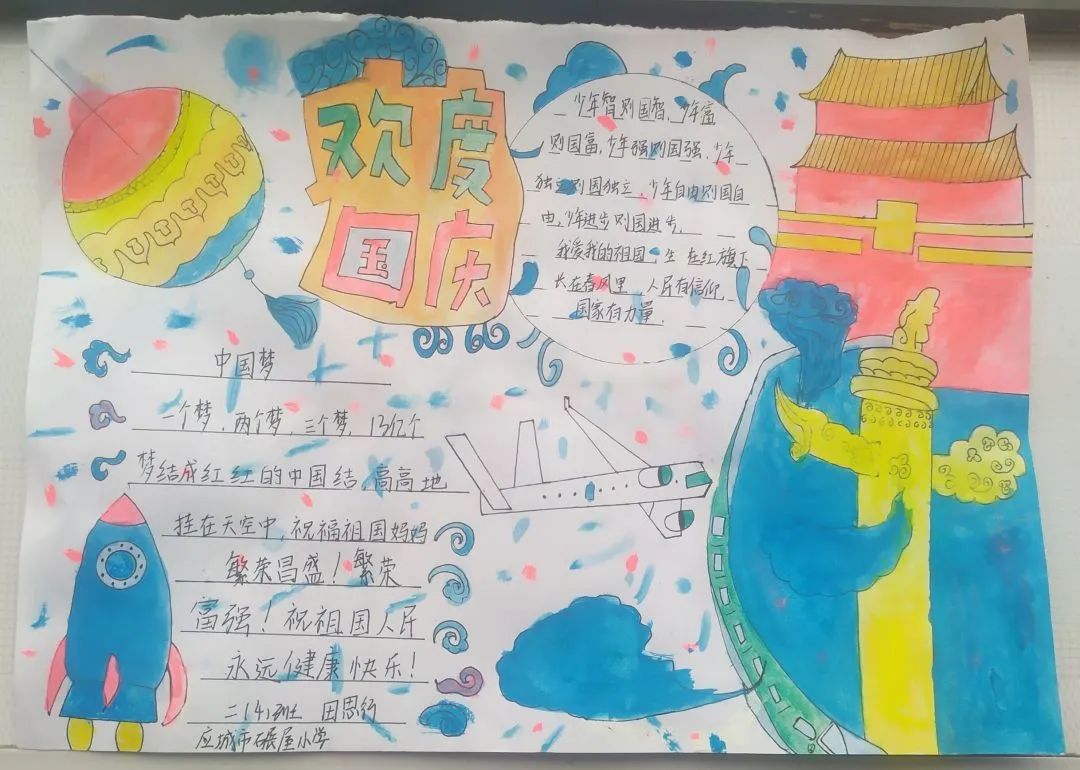 欢度
国庆
少年智则国智,少年富
则国富,少年强则国强,少年
独立则国独立,少年自由则国自
由,少年进步则国进步,
我爱我的祖国,生在红旗下
长在春风里 人民有信仰
国家有力量.
中国梦
一个梦,两个梦,三个梦,13亿个
梦结成红红的中国结,高高地
挂在天空中,祝福祖国妈妈
繁荣昌盛!繁荣
富强!祝祖国人民
永远健康快乐!
二(4)班 田恩行
应城市碾屋小学